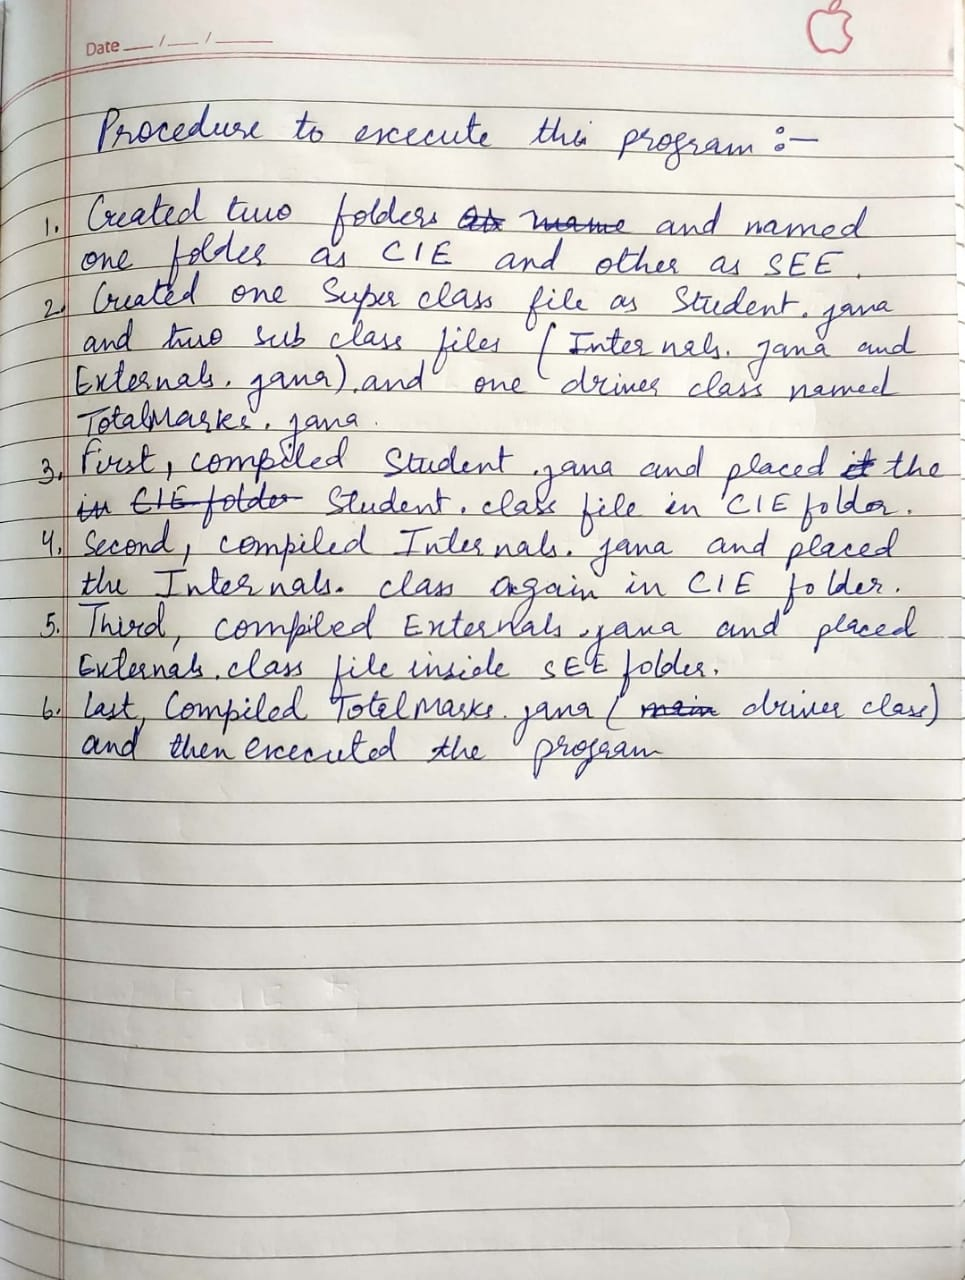 Date __/__/____
Procedure to execute this program :-
1. Created two folders as name and named
one folder as CIE and other as SEE.
2. Created one Super class file as Student.java
and two sub class files (Internals.java and
Externals.java) and one driver class named
TotalMarks.java.
3. First, compiled Student.java and placed it the
in CIE folder Student.class file in CIE folder.
4. Second, compiled Internals.java and placed
the Internals.class again in CIE folder.
5. Third, compiled Externals.java and placed
Externals.class file inside SEE folder.
6. Last, Compiled TotelMarks.java (main driver class)
and then executed the program